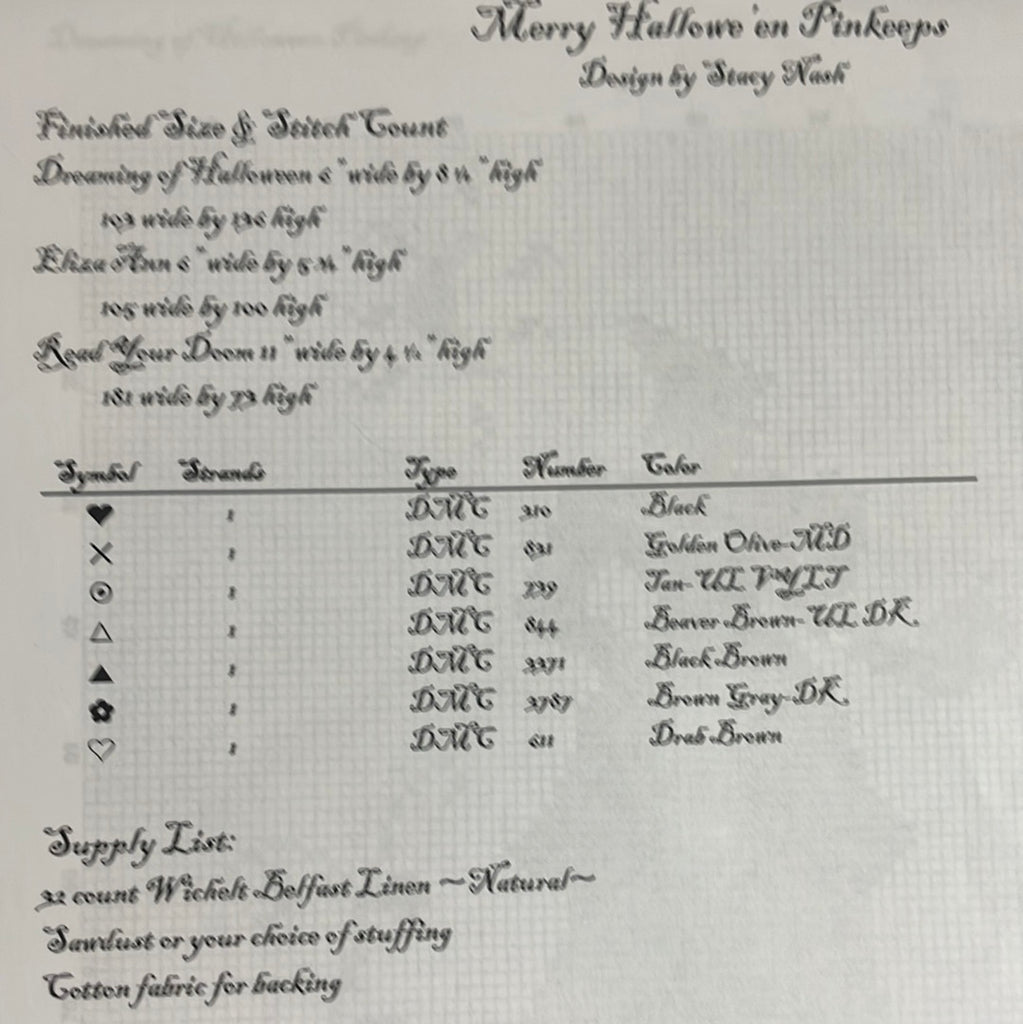 Merry Hallowe'en Pinkeeps
Design by Stacy Nash
Finished Size & Stitch Count
Dreaming of Halloween 6" wide by 8 ¼" high
103 wide by 136 high
Eliza Ann 6" wide by 5 ¾" high
105 wide by 100 high
Read Your Doom 11" wide by 4 ½" high
181 wide by 73 high
Symbol Strands Type Number Color
♥ DMC 310 Black
✕ DMC 831 Golden Olive-MD
⊙ DMC 739 Tan-UL VYLT
△ DMC 844 Beaver Brown-UL DK.
▲ DMC 3371 Black Brown
✿ DMC 3787 Brown Gray-DK.
♡ DMC 611 Drab Brown
Supply List:
32 count Wichelt Belfast Linen ~Natural~
Sawdust or your choice of stuffing
Cotton fabric for backing